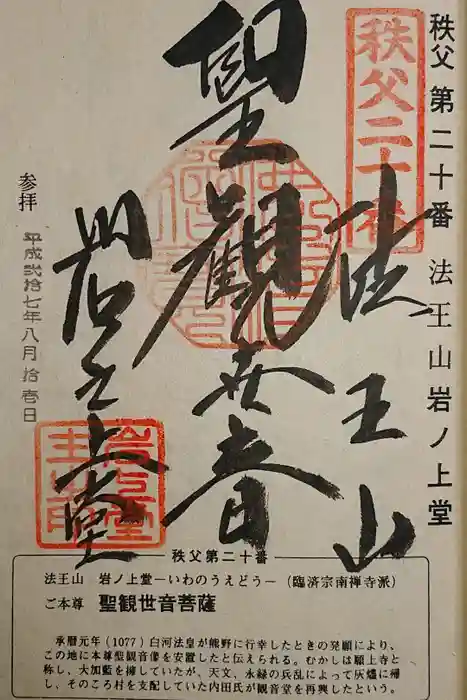 秩父 第二十番 法王山岩ノ上堂
秩父二十番
法王山
聖觀世音
岩之上堂
参拝 平成弐拾七年八月拾壱日
秩父第二十番
法王山 岩ノ上堂－いわのうえどう－（臨済宗南禅寺派）
ご本尊 聖観世音菩薩
承暦元年（1077）白河法皇が熊野に行幸したときの発願により、
この地に本尊聖観音像を安置したと伝えられる。むかしは願上寺と
称し、大加藍を擁していたが、天文、永緑の兵乱によって灰燼に帰
し、そのころ村を支配していた内田氏が観音堂を再興したという。